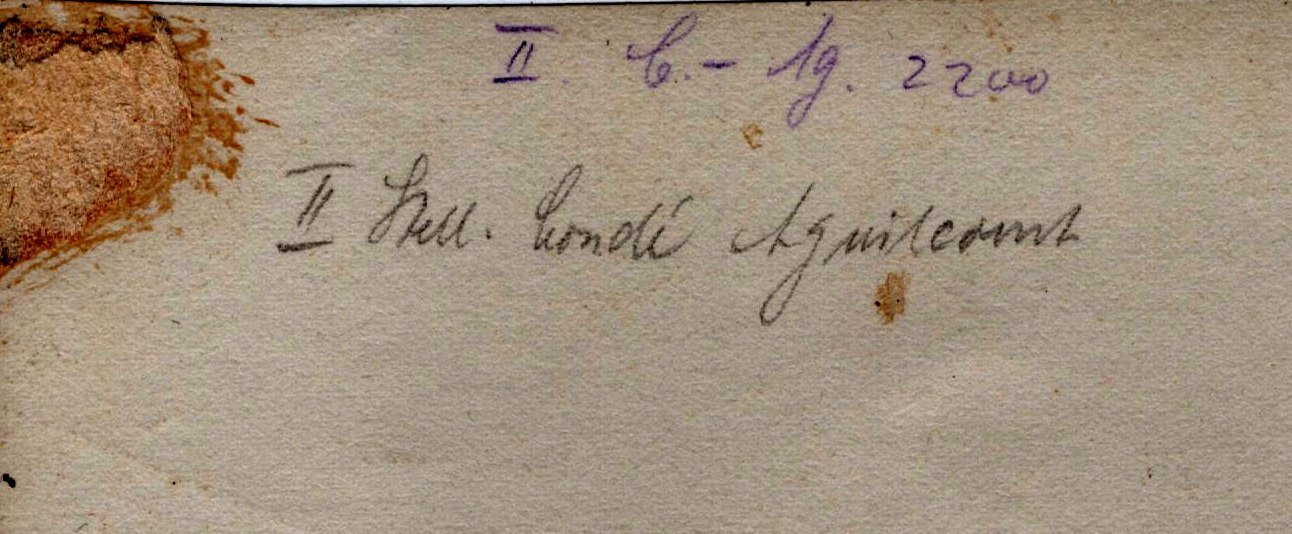 II. C.- Ag. 2200
II Stell. Condé Aguilcourt